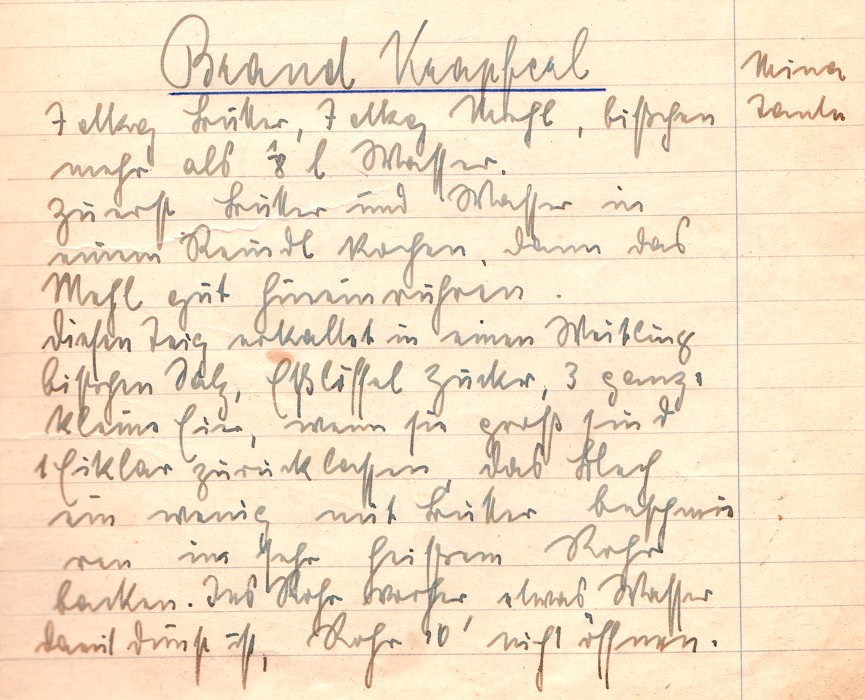 Brand Krapferl
Mina
Tante
7 dkg Butter, 7 dkg Mehl, bißchen
mehr als ⅛ l Wasser.
Zuerst Butter und Wasser in
einem Reindl kochen, dann das
Mehl gut hineinrühren.
diesen Teig erkaltet in einen Weitling
bißchen Salz, Eßlöffel Zucker, 3 ganz
kleine Eier, wenn sie groß sind
1 Eiklar zurücklassen, das Blech
ein wenig mit Butter beschmie
ren im sehr heißem Rohr
backen. Ins Rohr vorher etwas Wasser
damit Dunst ist, Rohr 10' nicht öffnen.